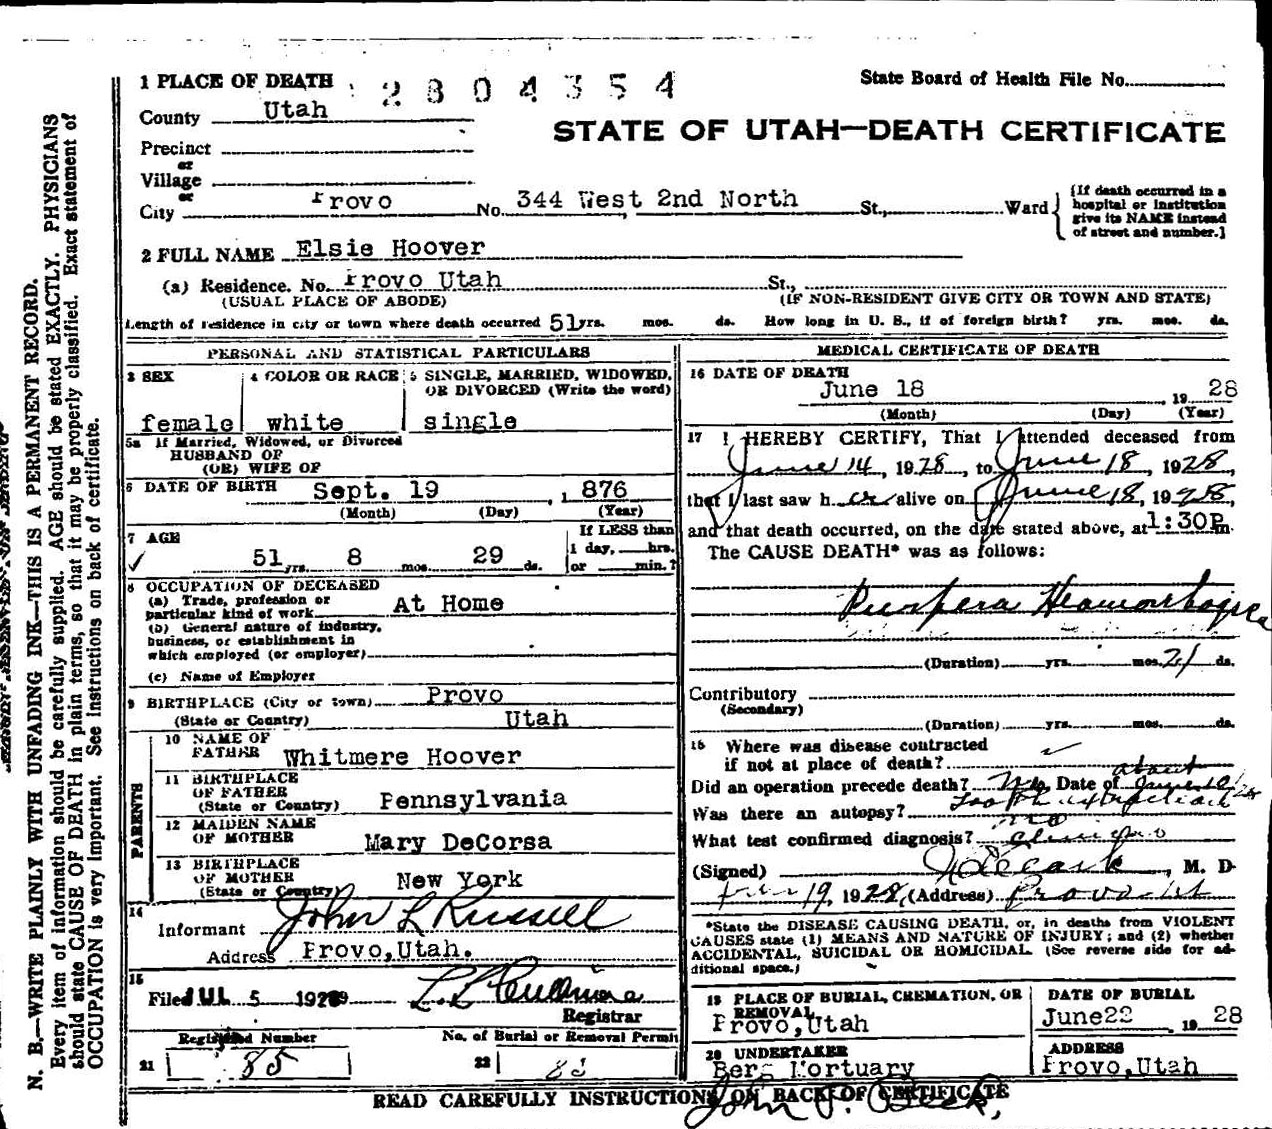 1 PLACE OF DEATH 2804354 State Board of Health File No.
County Utah
STATE OF UTAH—DEATH CERTIFICATE
Precinct
or
Village
or
City Provo No. 344 West 2nd North St., Ward
[If death occurred in a
hospital or institution
give its NAME instead
of street and number.]
2 FULL NAME Elsie Hoover
(a) Residence. No. Provo Utah St.,
(USUAL PLACE OF ABODE) (IF NON-RESIDENT GIVE CITY OR TOWN AND STATE)
Length of residence in city or town where death occurred 51 yrs. mos. ds. How long in U. S., if of foreign birth? yrs. mos. ds.
PERSONAL AND STATISTICAL PARTICULARS
3 SEX 4 COLOR OR RACE 5 SINGLE, MARRIED, WIDOWED,
OR DIVORCED (Write the word)
female white single
5a If Married, Widowed, or Divorced
HUSBAND OF
(OR) WIFE OF
6 DATE OF BIRTH Sept. 19, 1876
(Month) (Day) (Year)
7 AGE If LESS than
1 day, hrs.
51 yrs. 8 mos. 29 ds. or min.?
8 OCCUPATION OF DECEASED
(a) Trade, profession or
particular kind of work At Home
(b) General nature of industry,
business, or establishment in
which employed (or employer)
(c) Name of Employer
9 BIRTHPLACE (City or town) Provo
(State or Country) Utah
PARENTS
10 NAME OF
FATHER Whitmere Hoover
11 BIRTHPLACE
OF FATHER
(State or Country) Pennsylvania
12 MAIDEN NAME
OF MOTHER Mary DeCorsa
13 BIRTHPLACE
OF MOTHER
(State or Country) New York
14
Informant John L Russell
Address Provo, Utah.
15
Filed JUL 5 1928
Registrar
Registered Number No. of Burial or Removal Permit
21 85 22 83
MEDICAL CERTIFICATE OF DEATH
16 DATE OF DEATH
June 18, 1928
(Month) (Day) (Year)
17 I HEREBY CERTIFY, That I attended deceased from
June 14, 1928, to June 18, 1928,
that I last saw her alive on June 18, 1928,
and that death occurred, on the date stated above, at 1:30P m.
The CAUSE DEATH* was as follows:
Purpera Heamorrhagica
(Duration) yrs. mos. 21 ds.
Contributory
(Secondary)
(Duration) yrs. mos. ds.
18 Where was disease contracted
if not at place of death?
about
Did an operation precede death? Date of June 10/28
Tooth extraction
Was there an autopsy? no
What test confirmed diagnosis?
(Signed) , M. D
19, 1928, (Address) Provo Ut
*State the DISEASE CAUSING DEATH, or, in deaths from VIOLENT
CAUSES state (1) MEANS AND NATURE OF INJURY; and (2) whether
ACCIDENTAL, SUICIDAL OR HOMICIDAL. (See reverse side for ad-
ditional space.)
19 PLACE OF BURIAL, CREMATION, OR
REMOVAL
Provo, Utah
DATE OF BURIAL
June 22, 1928
20 UNDERTAKER
Berg Mortuary
John P. Beck.
ADDRESS
Provo, Utah
READ CAREFULLY INSTRUCTIONS ON BACK OF CERTIFICATE
N. B.—WRITE PLAINLY WITH UNFADING INK—THIS IS A PERMANENT RECORD.
Every item of information should be carefully supplied. AGE should be stated EXACTLY. PHYSICIANS
should state CAUSE OF DEATH in plain terms, so that it may be properly classified. Exact statement of
OCCUPATION is very important. See instructions on back of certificate.